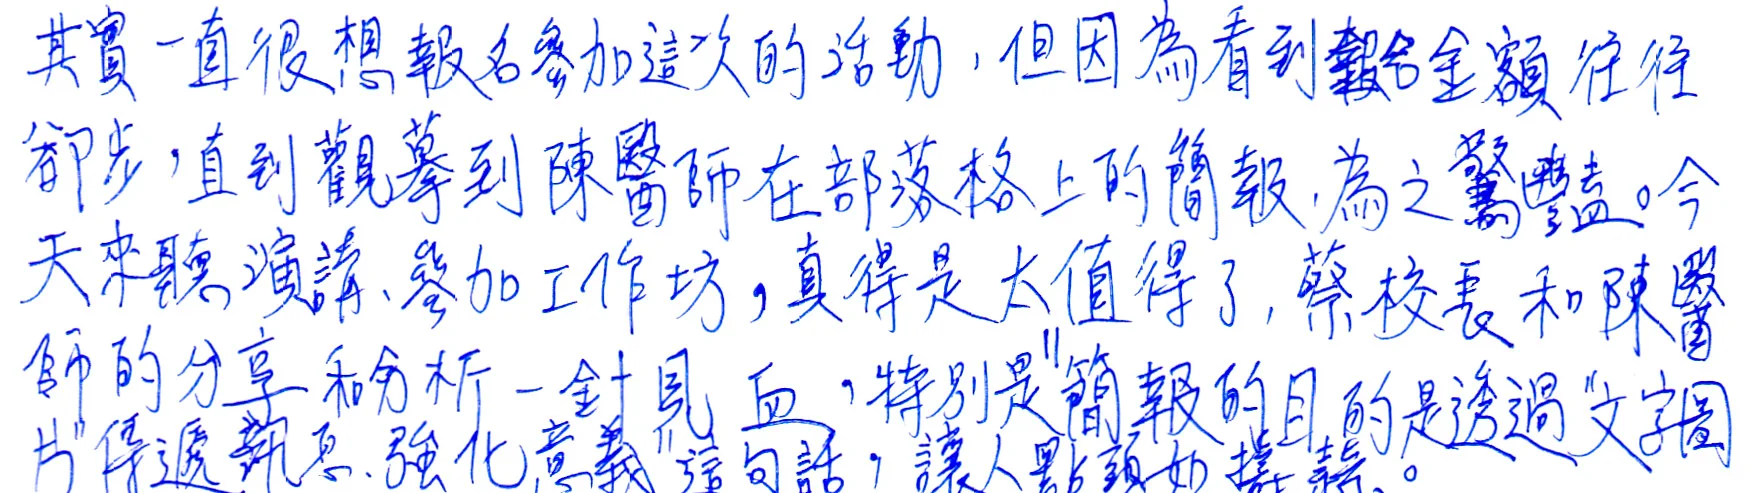 其實一直很想報名參加這次的活動，但因為看到報名金額往往
卻步，直到觀摹到陳醫師在部落格上的簡報，為之驚豔。今
天來聽演講、參加工作坊，真得是太值得了，蔡校長和陳醫
師的分享和分析一針見血，特別是"簡報的目的是透過"文字圖
片"傳遞訊息、強化意義"這句話，讓人點頭如搗蒜。